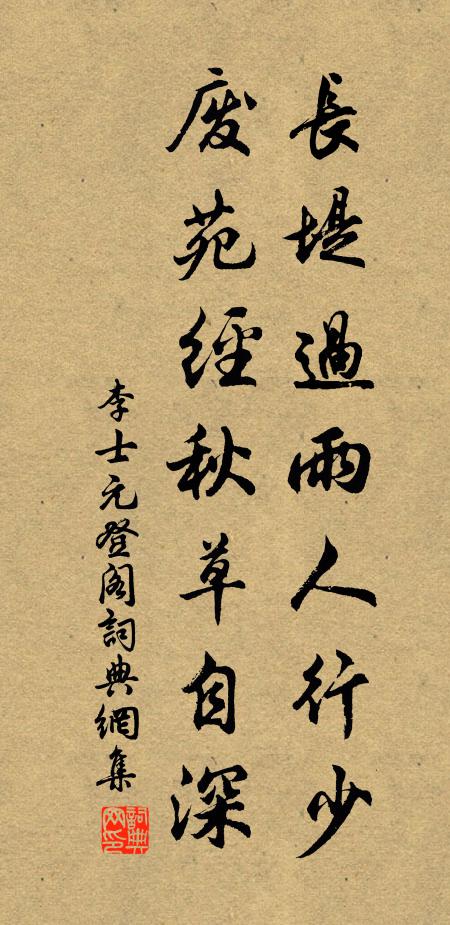 長堤過雨人行少
廢苑經秋草自深
李士元登閣詞典網集
詞典網印